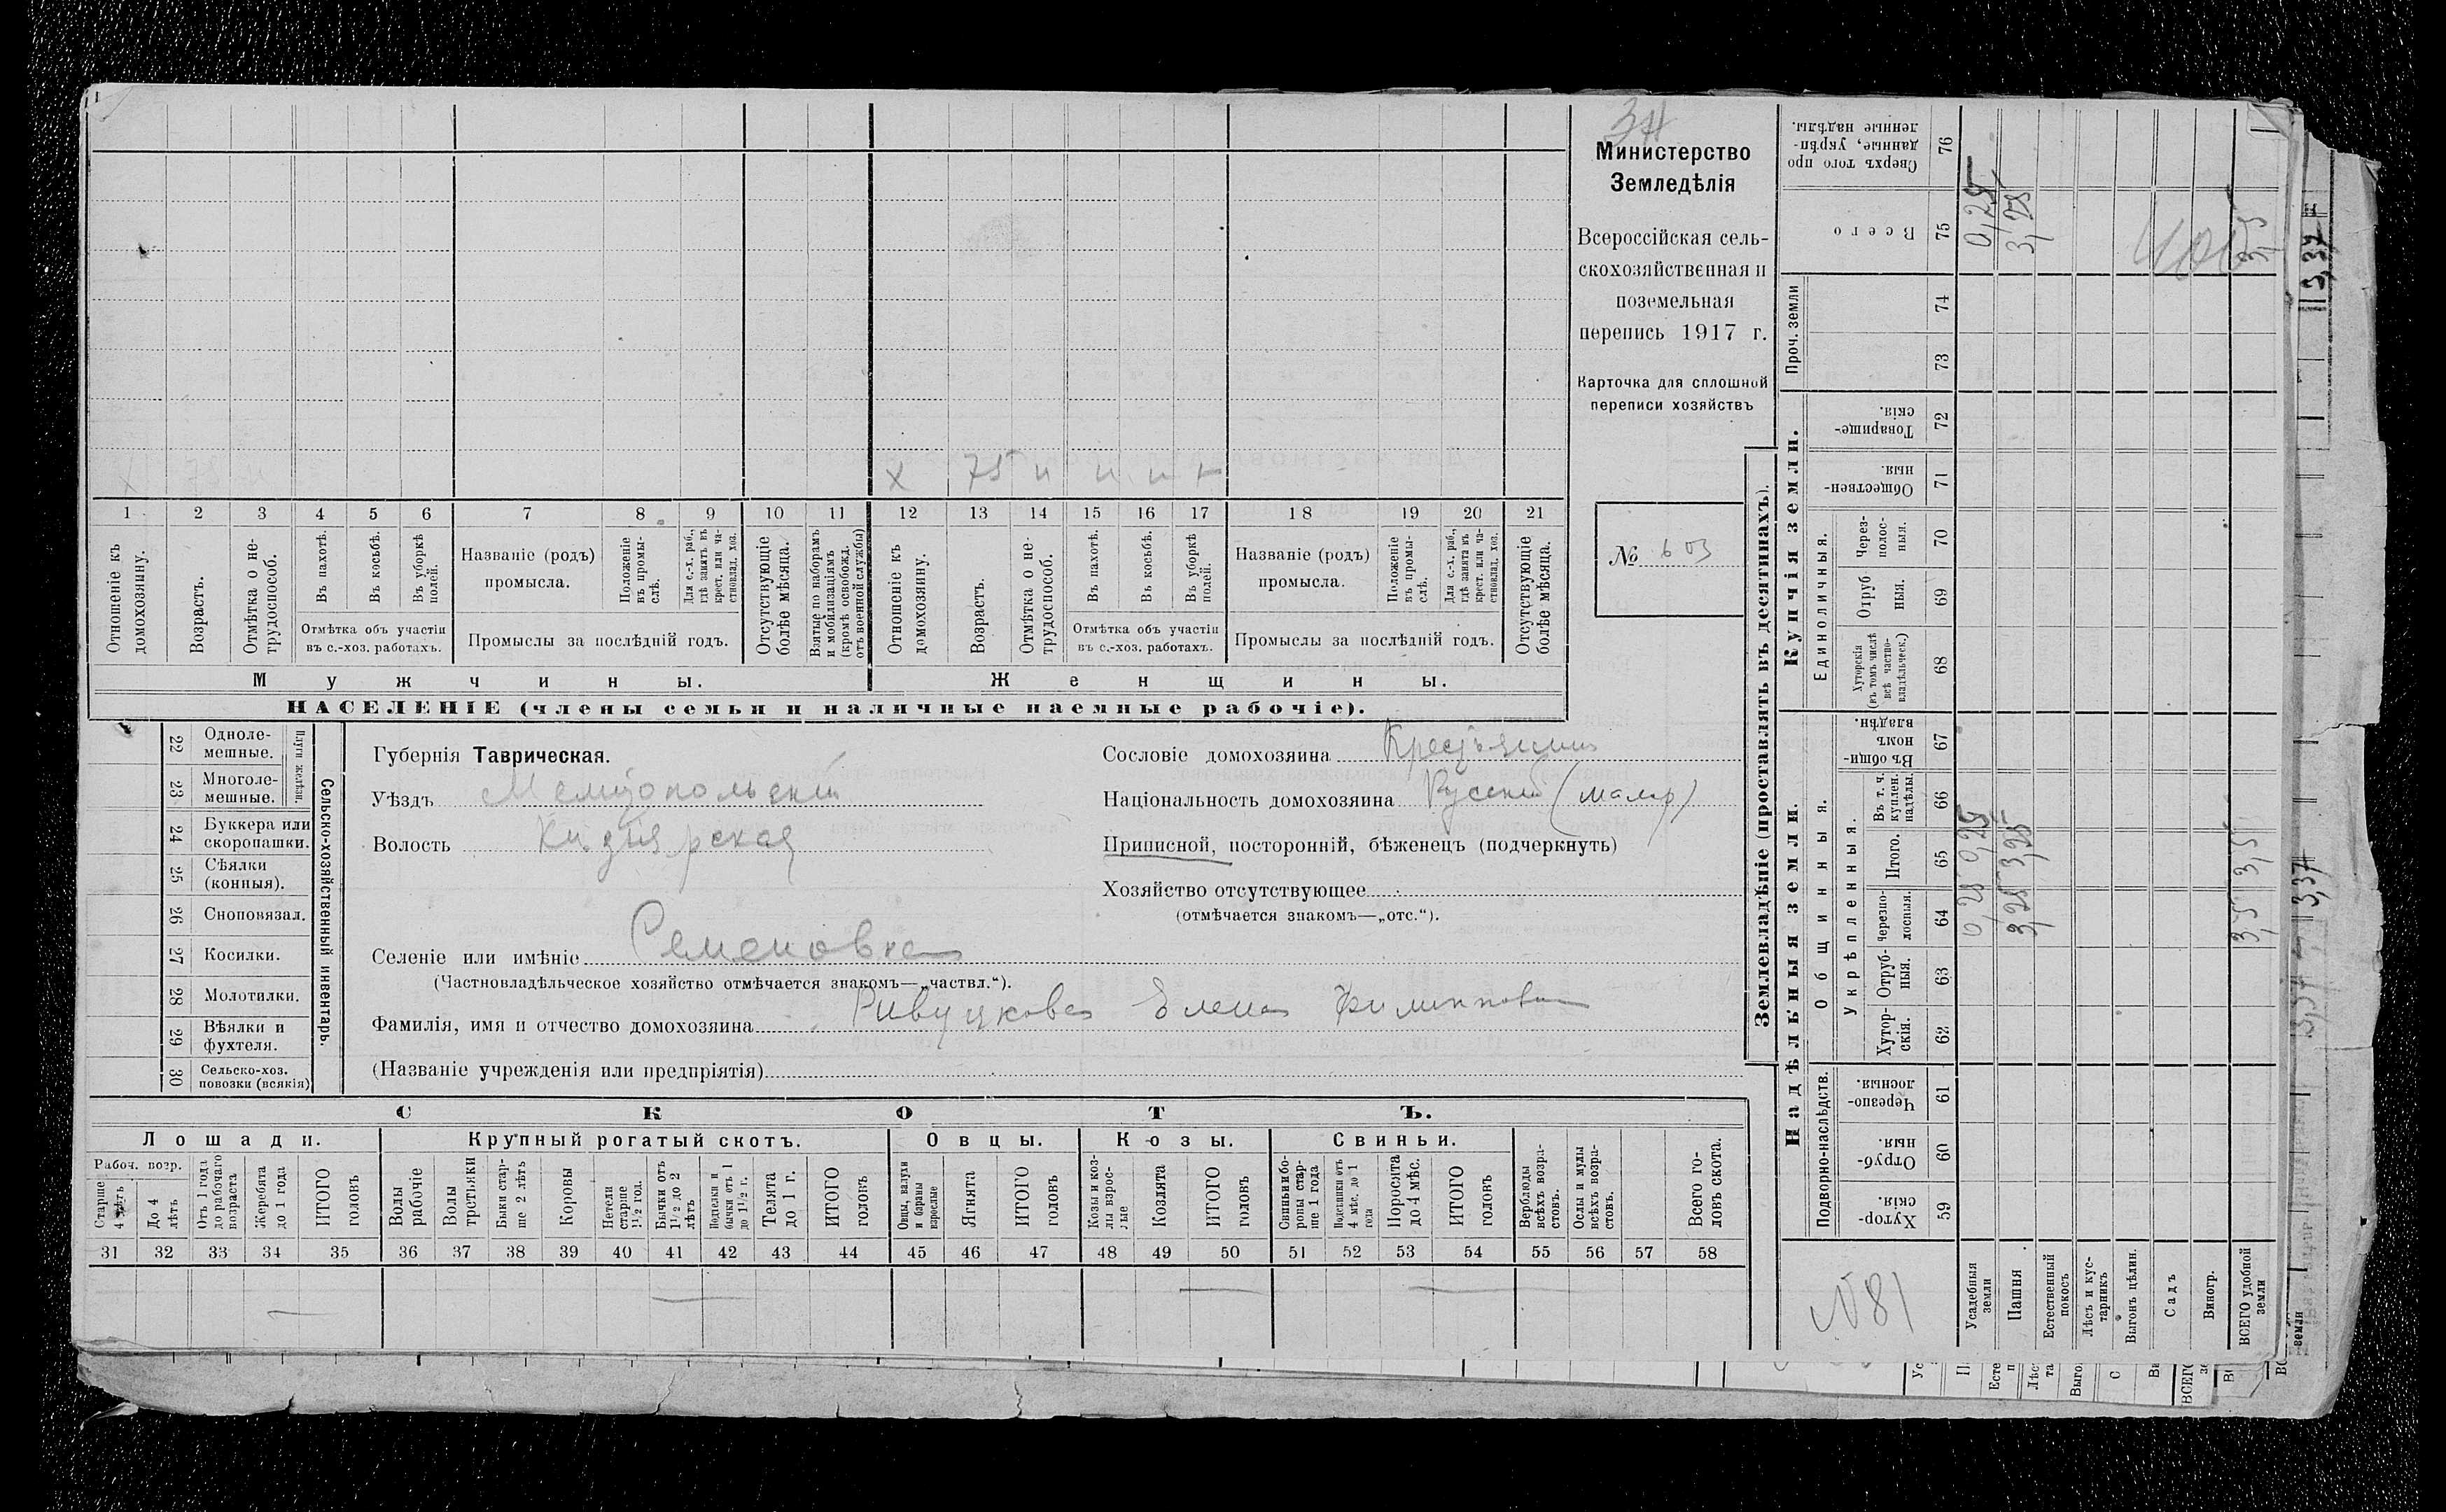 3н
Министерство
Земледѣлія
Всероссійская сель-
скохозяйственная и
поземельная
перепись 1917 г.
Карточка для сплошной
переписи хозяйствъ
№ 603
х 75 н н н
1 2 3 4 5 6 7 8 9 10 11 12 13 14 15 16 17 18 19 20 21
Отношеніе къ домохозяину.
Возрастъ.
Отмѣтка о не-трудоспособ.
Въ пахотѣ.
Въ косьбѣ.
Въ уборкѣ полей.
Отмѣтка объ участіи
въ с.-хоз. работахъ.
Названіе (родъ)
промысла.
Положеніе въ промы-слѣ.
Для с.-х. раб., гдѣ занятъ въ крест. или ча-стновлад. хоз.
Промыслы за послѣдній годъ.
Отсутствующіе болѣе мѣсяца.
Взятые по наборамъ и мобилизаціямъ (кромѣ освобожд. отъ военной службы)
Отношеніе къ домохозяину.
Возрастъ.
Отмѣтка о не-трудоспособ.
Въ пахотѣ.
Въ косьбѣ.
Въ уборкѣ полей.
Отмѣтка объ участіи
въ с.-хоз. работахъ.
Названіе (родъ)
промысла.
Положеніе въ промы-слѣ.
Для с.-х. раб., гдѣ занята въ крест. или ча-стновлад. хоз.
Промыслы за послѣдній годъ.
Отсутствующіе болѣе мѣсяца.
Мужчины. Женщины.
НАСЕЛЕНІЕ (члены семьи и наличные наемные рабочіе).
22 Одноле-мешные.
23 Многоле-мешные.
Плуги желѣзн.
24 Буккера или скоропашки.
25 Сѣялки (конныя).
26 Сноповязал.
27 Косилки.
28 Молотилки.
29 Вѣялки и фухтеля.
30 Сельско-хоз. повозки (всякія)
Сельско-хозяйственный инвентарь.
Губернія Таврическая.
Уѣздъ Мелитопольскій
Волость Кизіярская
Селеніе или имѣніе Семеновка
(Частновладѣльческое хозяйство отмѣчается знакомъ—„частвл.“).
Фамилія, имя и отчество домохозяина Ривуцкова Елена Филиппова
(Названіе учрежденія или предпріятія)
Сословіе домохозяина Крестьянинъ
Національность домохозяина Русскій (малор)
Приписной, посторонній, бѣженецъ (подчеркнуть)
Хозяйство отсутствующее
(отмѣчается знакомъ—„отс.“).
СКОТЪ.
Лошади. Крупный рогатый скотъ. Овцы. Козы. Свиньи.
Рабоч. возр.
Старше 4 лѣтъ
До 4 лѣтъ
Отъ 1 года до рабочаго возраста
Жеребята до 1 года
ИТОГО головъ
Волы рабочіе
Волы третьяки
Быки стар-ше 2 лѣтъ
Коровы
Нетели старше 1½ год.
Бычки отъ 1½ до 2 лѣтъ
Подтелки и бычки отъ 1 до 1½ г.
Телята до 1 г.
ИТОГО головъ
Овцы, валухи и бараны взрослые
Ягнята
ИТОГО головъ
Козы и коз-лы взрос-лые
Козлята
ИТОГО головъ
Свиньи и бо-ровы стар-ше 1 года
Подсвинки отъ 4 мѣс. до 1 года
Поросята до 4 мѣс.
ИТОГО головъ
Верблюды всѣхъ возра-стовъ.
Ослы и мулы всѣхъ возра-стовъ.
Всего го-ловъ скота.
31 32 33 34 35 36 37 38 39 40 41 42 43 44 45 46 47 48 49 50 51 52 53 54 55 56 57 58
Землевладѣніе (проставлять въ десятинахъ).
Надѣльныя земли.
Купчія земли.
Проч. земли
Подворно-наслѣдств.
Общинныя.
Укрѣпленныя.
Единоличныя.
Хутор-скія. 59
Отруб-ныя. 60
Черезпо-лосныя. 61
Хутор-скія. 62
Отруб-ныя. 63
Черезпо-лосныя. 64
Итого. 65
Въ т. ч. куплен. надѣлы. 66
Въ общи-номъ владѣн. 67
Хуторскія (въ томъ числѣ всѣ частно-владѣльческ.) 68
Отруб ныя. 69
Через-полос-ныя. 70
Обществен-ныя. 71
Товарище-скія. 72
73
74
Всего 75
Сверхъ того про данные, укрѣп-ленные надѣлы. 76
№81
Усадебныя земли 0,25 0,25 0,25
Пашня 3,25 3,25 3,25
Естественный покосъ
Лѣсъ и кус-тарникъ
Выгонъ цѣлин.
Садъ
Виногр.
ВСЕГО удобной земли 3,5 3,5 3,5
3,37
3,37